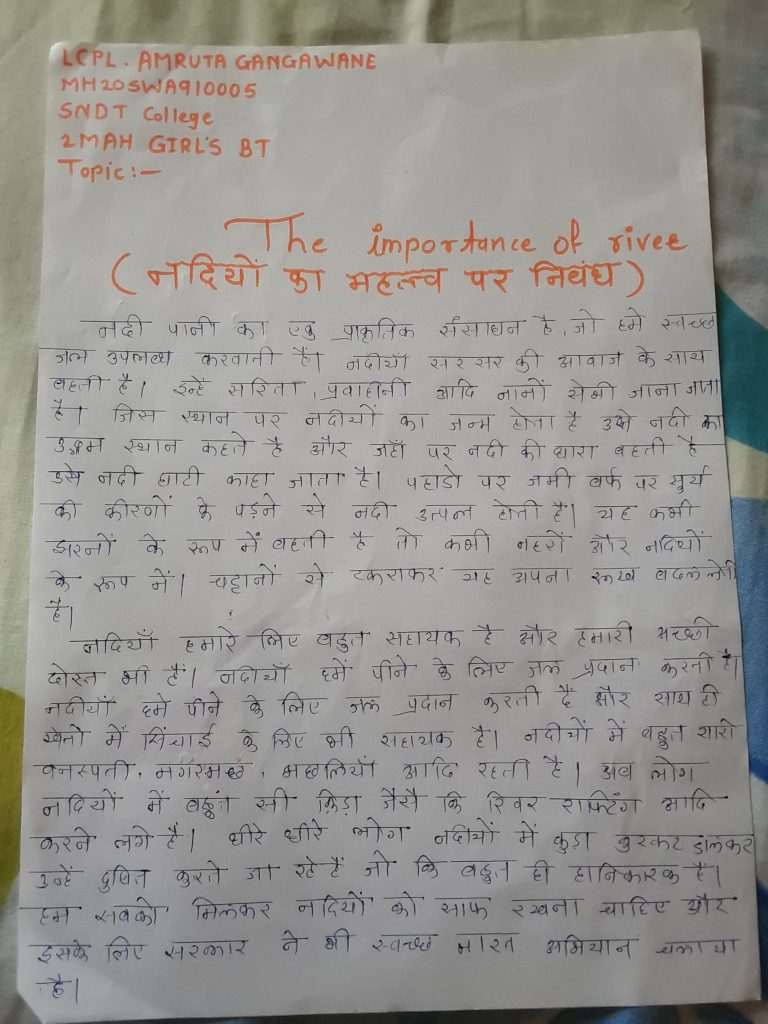 LCPL. AMRUTA GANGAWANE
MH20SWA910005
SNDT College
2MAH GIRL'S BT
Topic:-
The importance of rivee
(नदियों का महत्त्व पर निबंध)
नदी पानी का एक प्राकृतिक संसाधन है, जो हमें स्वच्छ
जल उपलब्ध करवाती है। नदीयाँ सरसर की आवाज के साथ
बहती है। इन्हें सरिता, प्रवाहीनी आदि नामों सेभी जाना जाता
है। जिस स्थान पर नदीयों का जन्म होता है उसे नदी का
उद्गम स्थान कहते है और जहाँ पर नदी की धारा बहती है
उसे नदी घाटी काहा जाता है। पहाडो पर जमी बर्फ पर सुर्य
की कीरणों के पड़ने से नदी उत्पन्न होती है। यह कभी
झरनों के रूप में बहती है तो कभी नहरों और नदियों
के रूप में। चट्टानों से टकराकर यह अपना रूख बदल लेती
है।
नदियाँ हमारे लिए बहुत सहायक है और हमारी अच्छी
दोस्त भी हैं। नदीयाँ हमें पीने के लिए जल प्रदान करती है।
नदीयाँ हमे पीने के लिए जल प्रदान करती है और साथ ही
खेतो में सिंचाई के लिए भी सहायक है। नदीयों में बहुत सारी
वनस्पती, मगरमछ, मछलियाँ आदि रहती है। अब लोग
नदियों में बहुत सी क्रिडा जैसै कि रिवर राफ्टिंग आदि
करने लगे है। धीरे धीरे लोग नदीयों में कुडा कुरकट डालकर
उन्हें दुषित करते जा रहे हैं जो कि बहुत ही हानिकारक है।
हम सबको मिलकर नदियों को साफ रखना चाहिए और
इसके लिए सरकार ने भी स्वच्छ भारत अभियान चलाया
है।